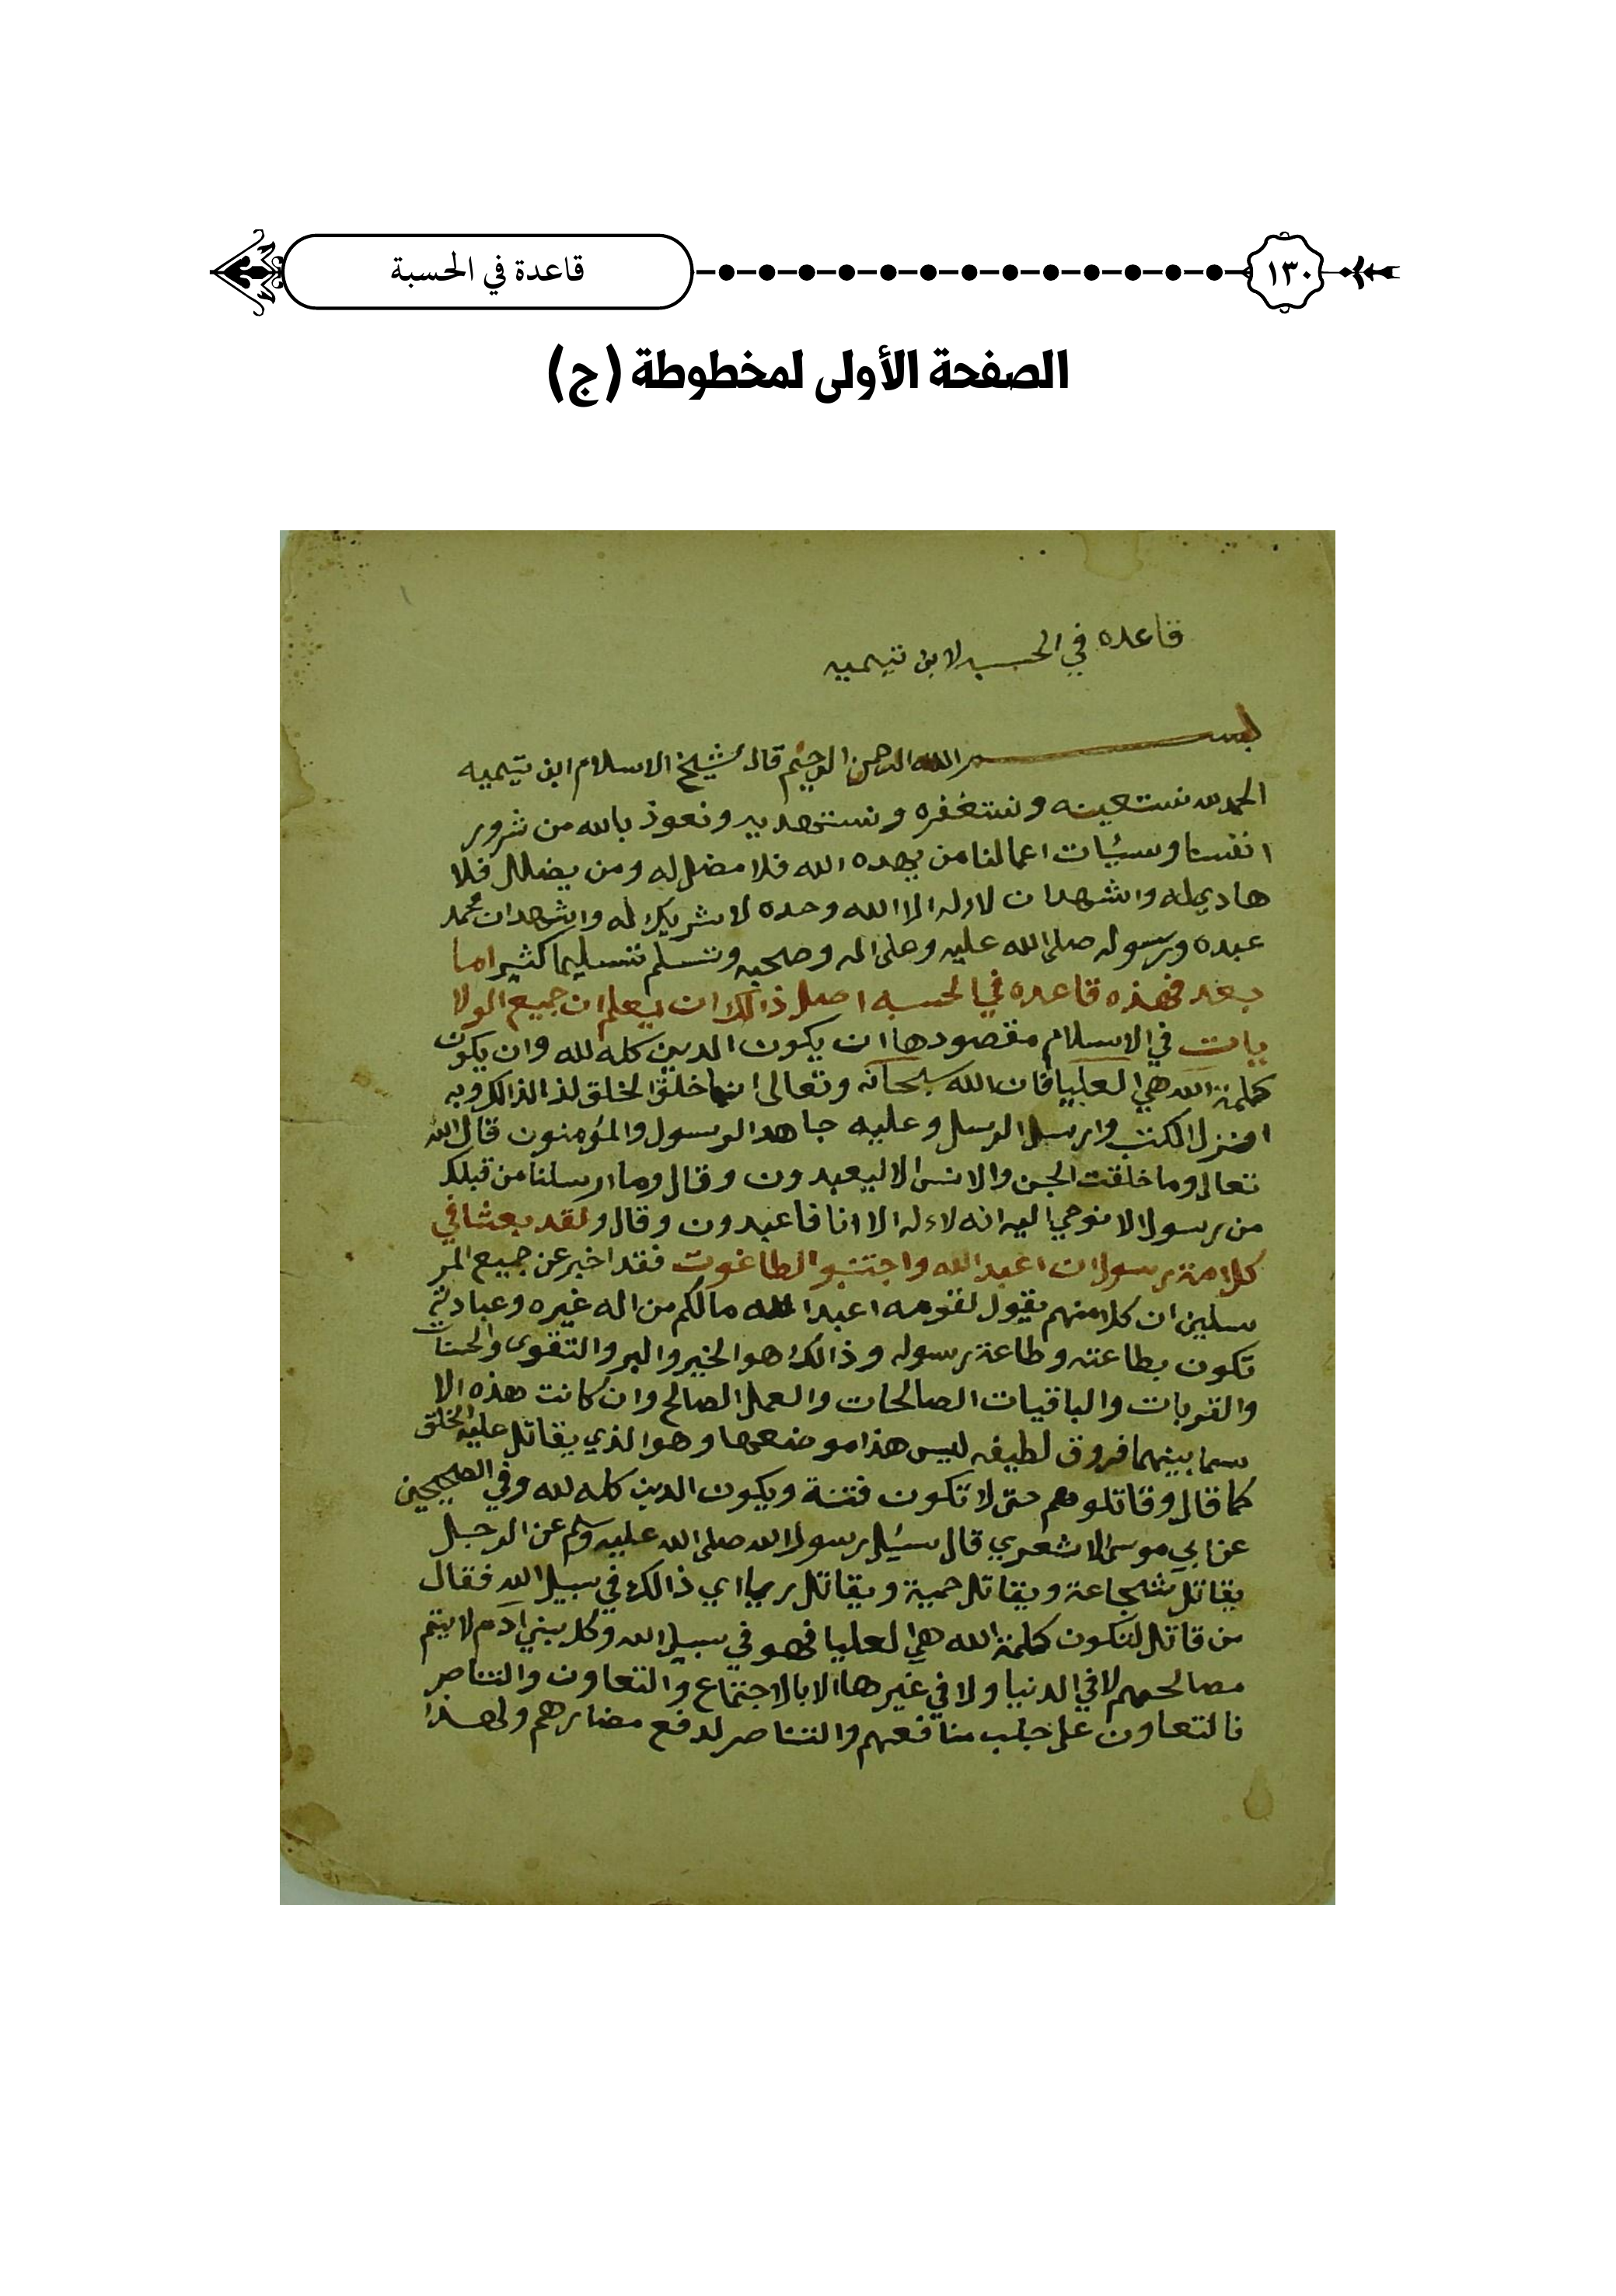 ١٣٠
قاعدة في الحسبة
الصفحة الأولى لمخطوطة (ج)
قاعده في الحسبه لابن تيميه
بسم الله الرحمن الرحيم قال شيخ الاسلام ابن تيميه
الحمد لله نستعينه ونستغفره ونستهديه ونعوذ بالله من شرور
انفسنا وسيئات اعمالنا من يهده الله فلا مضل له ومن يضلل فلا
هادي له واشهد ان لا اله الا الله وحده لا شريك له واشهد ان محمد
عبده ورسوله صلى الله عليه وعلى اله وصحبه وتسلم تسليما كثيرا اما
بعد فهذه قاعده في الحسبه اصل ذالك ان يعلم ان جميع الولا
يات في الاسلام مقصودها ان يكون الدين كله لله وان يكون
كلمة الله هي العليا فان الله سبحانه وتعالى انما خلق الخلق لذالك وبه
انزل الكتب وارسل الرسل وعليه جاهد الرسول والمؤمنون قال الله
تعالى وما خلقت الجن والانس الا ليعبدون وقال وما ارسلنا من قبلك
من رسول الا نوحي اليه انه لا اله الا انا فاعبدون وقال ولقد بعثنا في
كل امة رسولا ان اعبد الله واجتنبو الطاغوت فقد اخبر عن جميع المر
سلين ان كلا منهم يقول لقومه اعبدا الله مالكم من اله غيره وعبادته
تكون بطاعته وطاعة رسوله وذالك هو الخير والبر والتقوى والحسنات
والقربات والباقيات الصالحات والعمل الصالح وان كانت هذه الا
سما بينهما فروق لطيفه ليس هذا موضعها وهو الذي يقاتل عليه الخلق
كما قال وقاتلوهم حتى لا تكون فتنة ويكون الدين كله لله وفي الصحيحين
عن ابي موسى الاشعري قال سئيل رسول الله صلى الله عليه وسلم عن الرجل
يقاتل شجاعة ويقاتل حمية ويقاتل رياا اي ذالك في سبيل الله فقال
من قاتل لتكون كلمة الله هي العليا فهو في سبيل الله وكل بني آدم لا يتم
مصالحهم لا في الدنيا ولا في غيرها الا بالاجتماع والتعاون والتناصر
فالتعاون على جلب منافعهم والتناصر لدفع مضارهم ولهذا